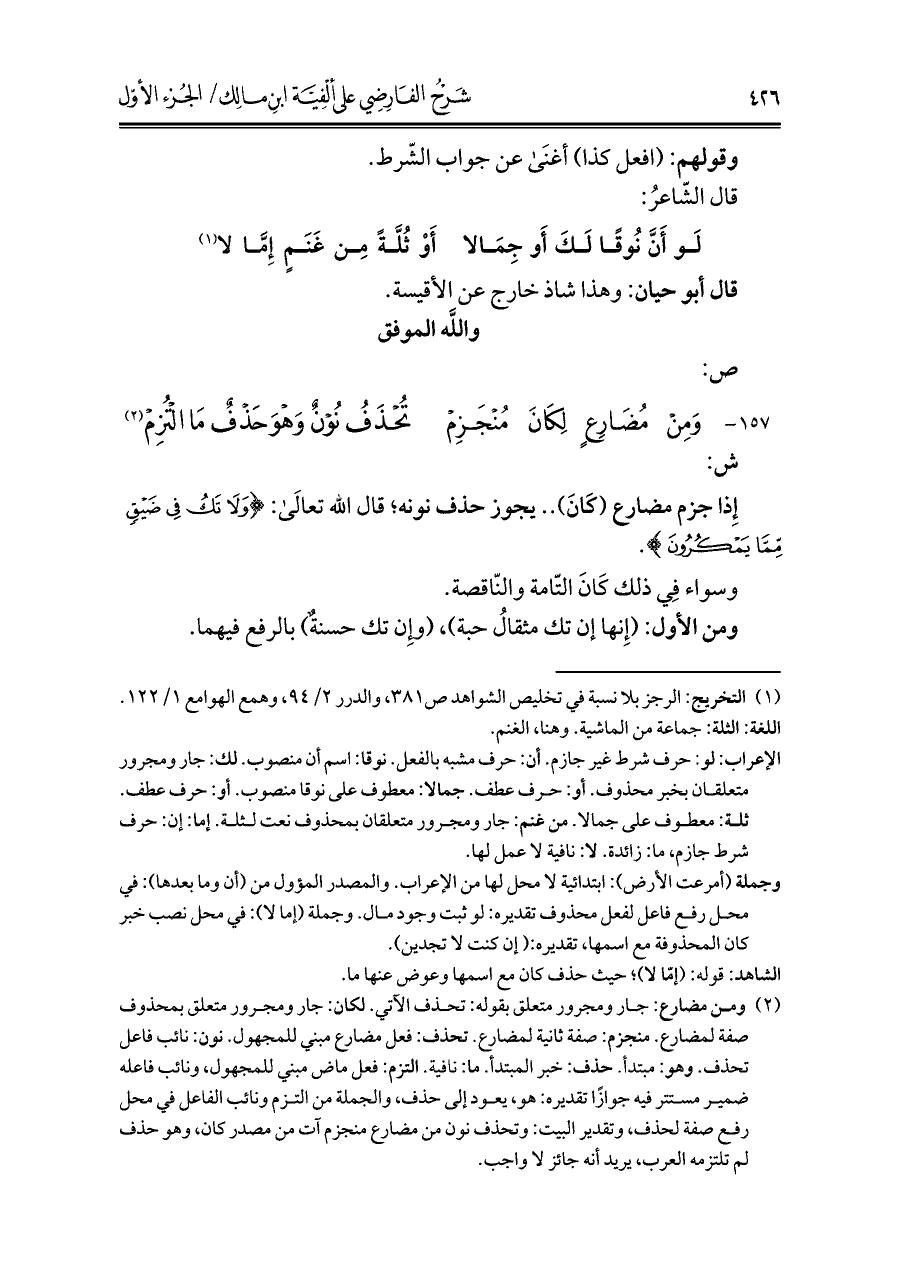 ٤٢٦ شَرْحُ الفَارِضِي عَلى أَلْفِيَّة ابنِ مَالِك/ الجُزء الأوّل
وقولهم: (افعل كذا) أغنَىٰ عن جواب الشّرط.
قال الشّاعرُ:
لَـو أَنَّ نُوقًـا لَـكَ أَو جِمَـالا أَوْ ثُلَّـةً مِـن غَنَـمٍ إِمَّـا لا(١)
قال أبو حيان: وهذا شاذ خارج عن الأقيسة.
واللَّه الموفق
ص:
١٥٧- وَمِنْ مُضَارِعٍ لِكَانَ مُنْجَزِمْ تُحْذَفُ نُوْنٌ وَهْوَ حَذْفٌ مَا الْتُزِمْ(٢)
ش:
إِذا جزم مضارع (كَانَ).. يجوز حذف نونه؛ قال الله تعالَىٰ: ﴿وَلَا تَكُ فِي ضَيْقٍ
مِّمَّا يَمْكُرُونَ﴾.
وسواء فِي ذلك كَانَ التّامة والنّاقصة.
ومن الأول: (إِنها إن تك مثقالُ حبة)، (وإِن تك حسنةٌ) بالرفع فيهما.
(١) التخريج: الرجز بلا نسبة في تخليص الشواهد ص٣٨١، والدرر ٢/ ٩٤، وهمع الهوامع ١/ ١٢٢.
اللغة: الثلة: جماعة من الماشية. وهنا، الغنم.
الإعراب: لو: حرف شرط غير جازم. أن: حرف مشبه بالفعل. نوقا: اسم أن منصوب. لك: جار ومجرور
متعلقـان بخبر محذوف. أو: حـرف عطف. جمالا: معطوف على نوقا منصوب. أو: حرف عطف.
ثلـة: معطـوف على جمالا. من غنم: جار ومجـرور متعلقان بمحذوف نعت لـثلـة. إما: إن: حرف
شرط جازم، ما: زائدة. لا: نافية لا عمل لها.
وجملة (أمرعت الأرض): ابتدائية لا محل لها من الإعراب. والمصدر المؤول من (أن وما بعدها): في
محـل رفـع فاعل لفعل محذوف تقديره: لو ثبت وجود مـال. وجملة (إما لا): في محل نصب خبر
كان المحذوفة مع اسمها، تقديره:( إن كنت لا تجدين).
الشاهد: قوله: (إمّا لا)؛ حيث حذف كان مع اسمها وعوض عنها ما.
(٢) ومـن مضارع: جـار ومجرور متعلق بقوله: تحـذف الآتي. لكان: جار ومجـرور متعلق بمحذوف
صفة لمضارع. منجزم: صفة ثانية لمضارع. تحذف: فعل مضارع مبني للمجهول. نون: نائب فاعل
تحذف. وهو: مبتدأ. حذف: خبر المبتدأ. ما: نافية. التزم: فعل ماض مبني للمجهول، ونائب فاعله
ضميـر مسـتتر فيه جوازًا تقديره: هو، يعـود إلى حذف، والجملة من التـزم ونائب الفاعل في محل
رفـع صفة لحذف، وتقدير البيت: وتحذف نون من مضارع منجزم آت من مصدر كان، وهو حذف
لم تلتزمه العرب، يريد أنه جائز لا واجب.